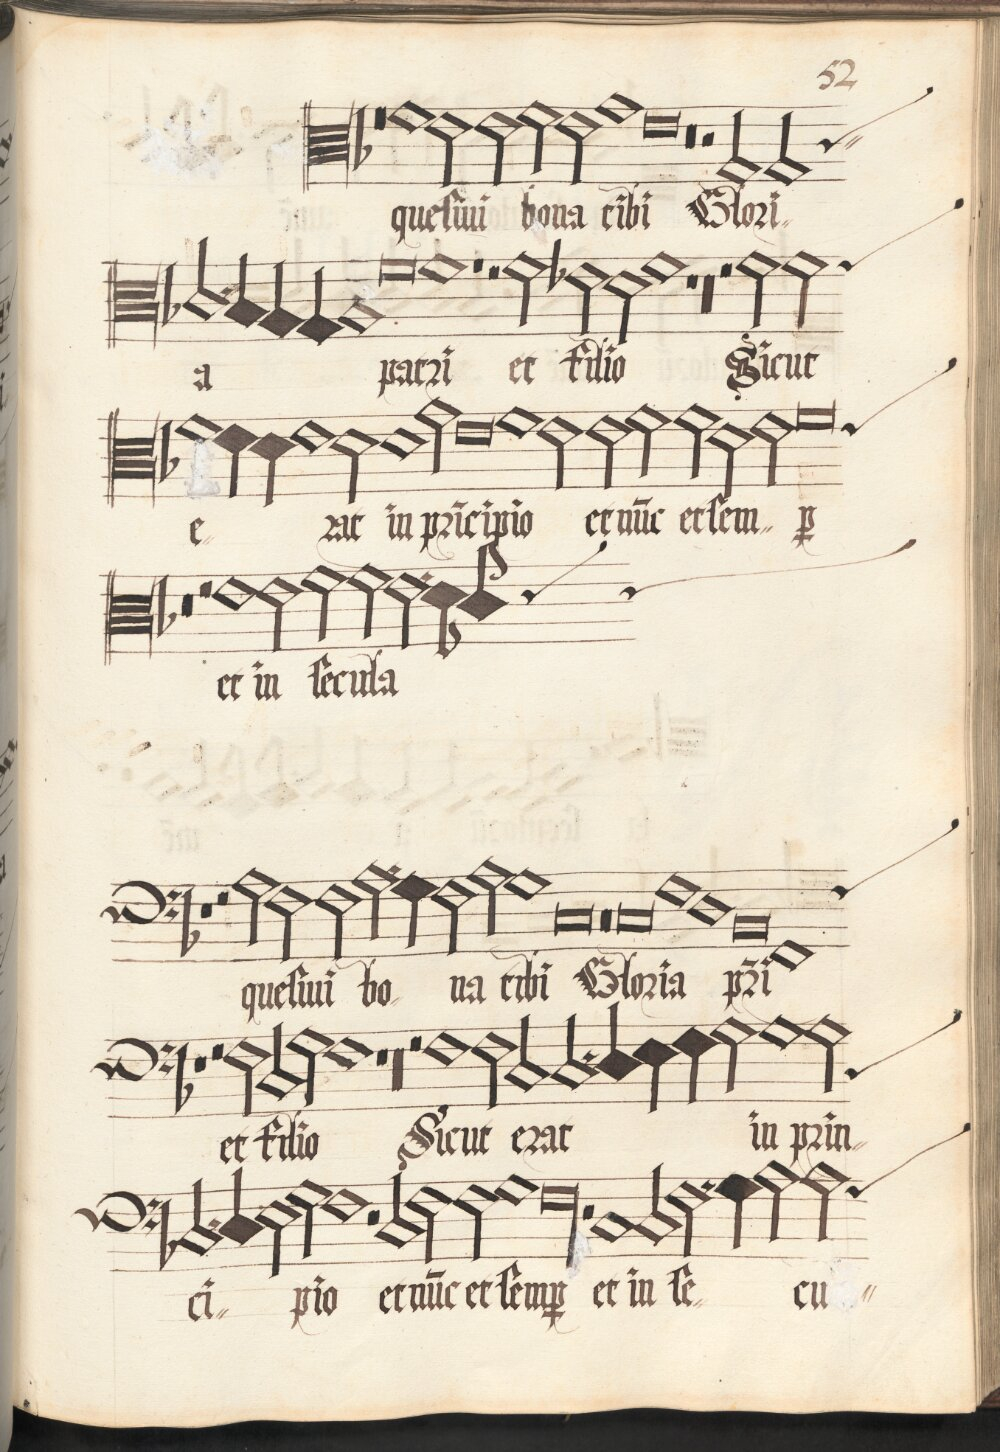 52
quesiui bona tibi Glori
a patri et filio Sicut
e rat in pri̅cipio et nu̅c et sem ꝑ
et in secula
quesiui bo na tibi Gloria pr̅i
et filio Sicut erat in prin
ci pio et nu̅c et semꝑ et in se cu